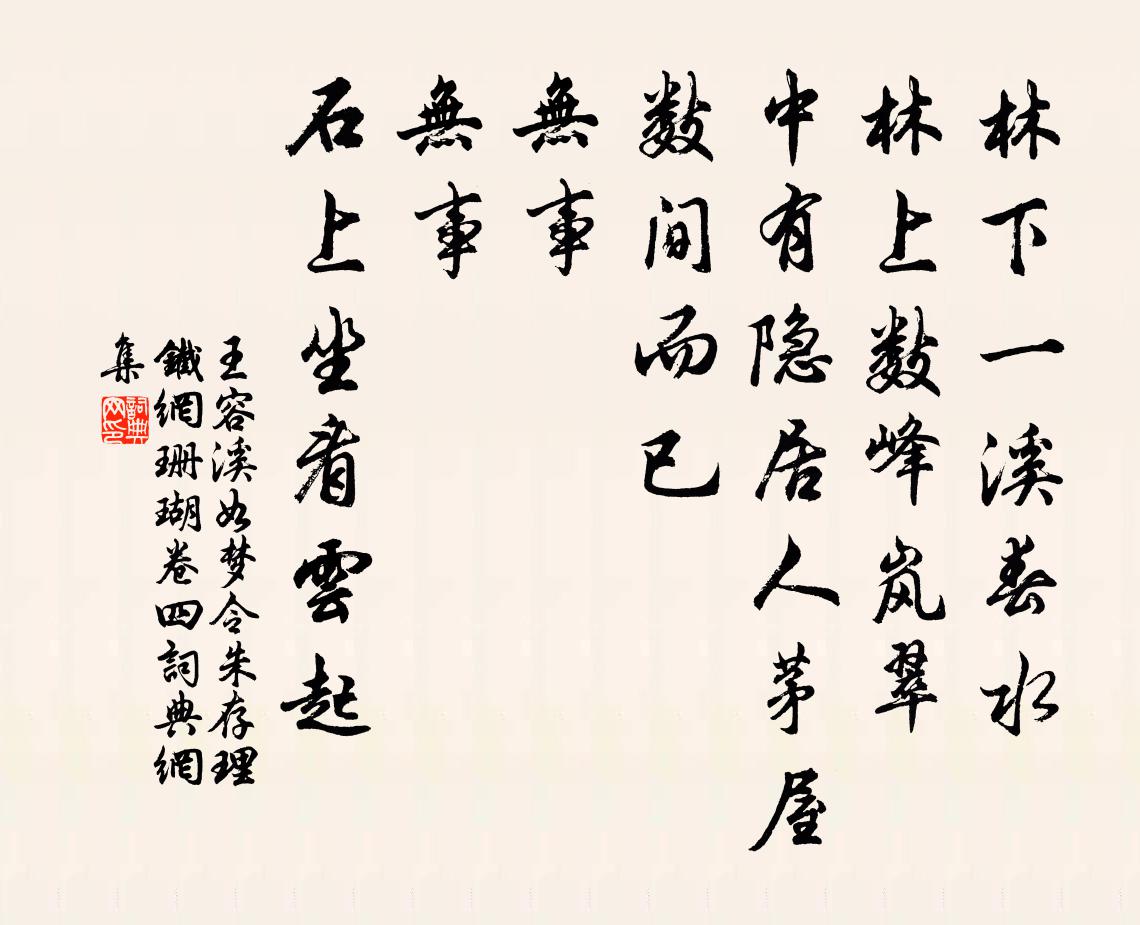 林下一溪春水
林上数峰岚翠
中有隐居人茅屋
数间而已
無事
無事
石上坐看雲起
王容溪如梦令朱存理
鐵網珊瑚卷四詞典網
集
詞典網印